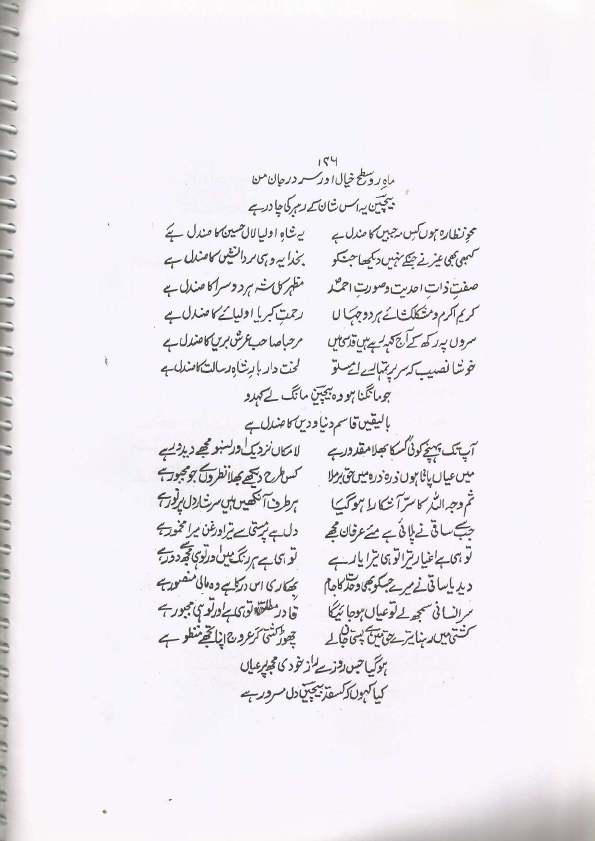 ۱۲۶
ماہِ رو سطح خیال اور سرد در جان من
بیچین یہ اس شان کے رہبر کی چادر ہے
محوِ نظارہ ہوں کس مہ جبیں کا صندل ہے یہ شاہِ اولیا لال حسین کا صندل ہے
کبھی بھی غیر نے جنکے نہیں دیکھا جنکو بخدا یہ وہی مردانشیں کا صندل ہے
صفتِ ذاتِ احدیت و صورتِ احمدؐ مظہر کل شہ ہر دوسرا کا صندل ہے
کریم اکرم و مشکلکشائے ہر دوجہاں رحمتِ کبریا اولیائے کا صندل ہے
سروں پہ رکھ کے آج کہہ رہے ہیں قدسی میں مرحبا صاحب عرش بریں کا صندل ہے
خوشا نصیب کہ سر پر تمہارے اے مستو لخت دار بار شاہِ رسالت کا صندل ہے
جو مانگنا ہو وہ بیچین مانگ لے کہدو
بالیقیں قاسم دنیا و دیں کا صندل ہے
آپ تک پہنچے کوئی کسکا بھلا مقدور ہے لامکاں نزدیک اور بسنو مجھے دید دو ہے
میں عیاں پاتا ہوں ذرہ ذرہ میں حق برملا کس طرح دیکھے بھلا نظروں سے جو مجبور ہے
ثم وجہ اللہ کا سرّ آشکارا ہو گیا ہر طرف آنکھیں ہیں سرشار دل پر نور ہے
جب سے ساقی نے پلائی ہے مئے عرفان مجھے دل ہے پرمستی سے تیرا اور غن میرا مخمور ہے
تو ہی ہے اغیار تیرا تو ہی تیرا یار ہے تو ہی ہے ہر رنگ میں اور تو ہی مجھ سے دور ہے
دیدیا ساقی نے میرے جسکو بھی وحدت کا جام بھکاری اس در کا ہے وہ مالی منصور ہے
سر انسانی سمجھ لے تو عیاں ہو جائیگا قادر مطلق تو ہی ہے اور تو ہی مجبور ہے
کشتی میں رہنا تیرے حق میں ہے پستی جان لے چھوڑ کشتی کر عروج اپنا تجھے منظور ہے
ہو گیا جس روز سے راز خودی مجھ پر عیاں
کیا کہوں کہ کسقدر بیچین دل مسرور ہے